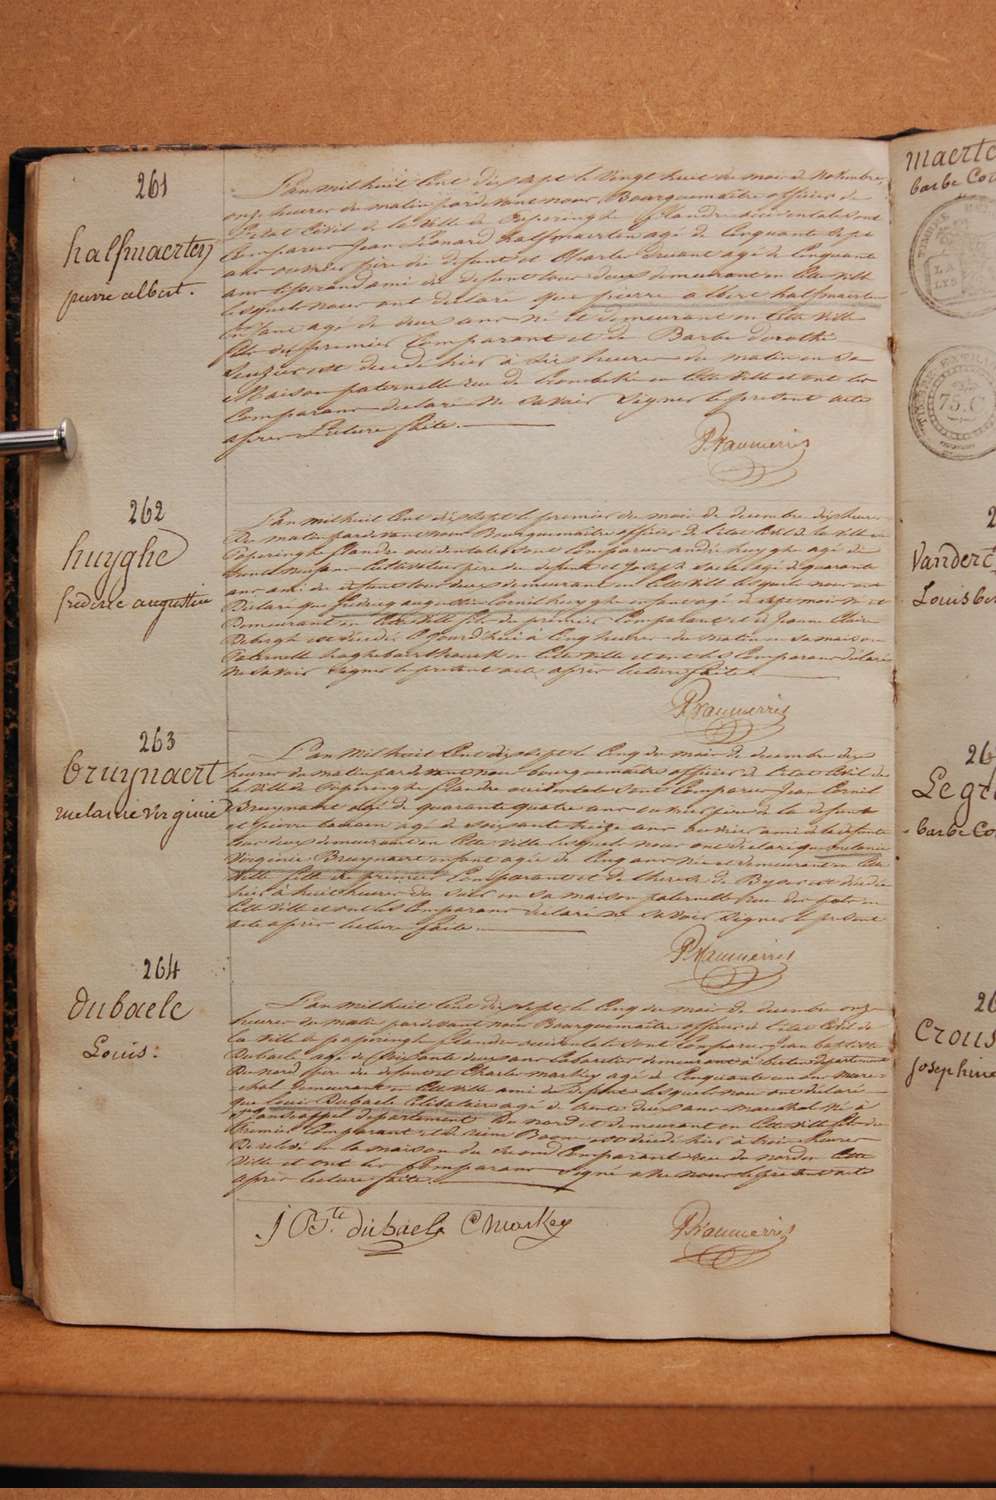 261
halfmaerten
pierre albert.
L'an mil huit Cent dix sept le vingt huit du mois de Novembre,
onze heures du matin pardevant nous Bourguemaitre officier de
l'etat Civil de la Ville de Poperinghe flandre occidentale sont
Comparus Jean Léonard halfmaerten agé de Cinquante sept
ans ouvrier père du defunt et Charles agé de Cinquante
ans ami du defunt tous deux demeurant en Cette Ville
lesquels nous ont declaré que pierre albert halfmaerten
Enfant agé de deux ans né et demeurant en Cette Ville
fils du premier Comparant et de Barbe dorothé
est decedé hier à six heures du matin en Sa
Maison paternelle rue de en Cette Ville et ont les
Comparans declaré ne Savoir Signer le present acte
après Lecture faite.
262
huyghe
frederic augustin
L'an mil huit Cent dix sept le premier du mois de decembre dix heures
du matin pardevant nous Bourguemaitre officier de l'etat Civil de la Ville de
Poperinghe flandre occidentale sont Comparus andré huyghe agé de
trente neuf ans Cultivateur père du defunt et Joseph agé de quarante
ans ami du defunt tous deux demeurant en Cette Ville lesquels nous ont
Declaré que augustin Cornil huyghe enfant agé de sept mois né et
demeurant en Cette Ville fils du premier Comparant et de Jeanne Claire
Debergh est decedé aujourd'hui à Cinq heures du matin en Sa maison
Paternelle en Cette Ville et ont les Comparans declaré
ne Savoir Signer le present acte après lecture faite.
263
bruynaert
melanie virginie
L'an mil huit Cent dix sept le Cinq du mois de decembre dix
heures du matin pardevant nous bourguemaitre officier de l'etat Civil de
la Ville de Poperinghe flandre occidentale sont Comparus Jean Cornil
Bruynaert agé de quarante quatre ans ouvrier père de la defunte
et pierre agé de soixante treize ans ouvrier ami de la defunte
tous deux demeurant en Cette Ville lesquels nous ont declaré que melanie
Virginie Bruynaert enfant agée de Cinq ans née et demeurant en Cette
Ville fille du premier Comparant et de therese de est decedée
hier à huit heures du Soir en sa maison paternelle rue des pots en
Cette Ville et ont les Comparans declaré ne Savoir Signer le present
acte après lecture faite.
264
dubaele
Louis.
L'an mil huit Cent dix sept, le Cinq du mois de decembre onze
heures du matin pardevant nous Bourguemaitre officier de l'etat Civil de
la Ville de poperinghe flandre occidentale sont Comparus Jean baptiste
Dubaele agé de soixante deux ans Cabaretier demeurant à departement
du Nord père du defunt et Charles markey agé de Cinquante un ans mare-
chal demeurant en Cette Ville ami du defunt lesquels nous ont declaré
que louis Dubaele Celibataire agé de trente deux ans marechal né à
departement du Nord et demeurant en Cette Ville fils du
Premier Comparant et de est decedé hier à trois heures
de relevée en la maison du second Comparant rue du nord en Cette
Ville et ont les Comparans Signé avec nous le present acte
après lecture faite.
J Bte dubaele C Markey
maerte
barbe Co
75.C
Vander
Louis
26
Legr
barbe Co
26
Crous
Josephine